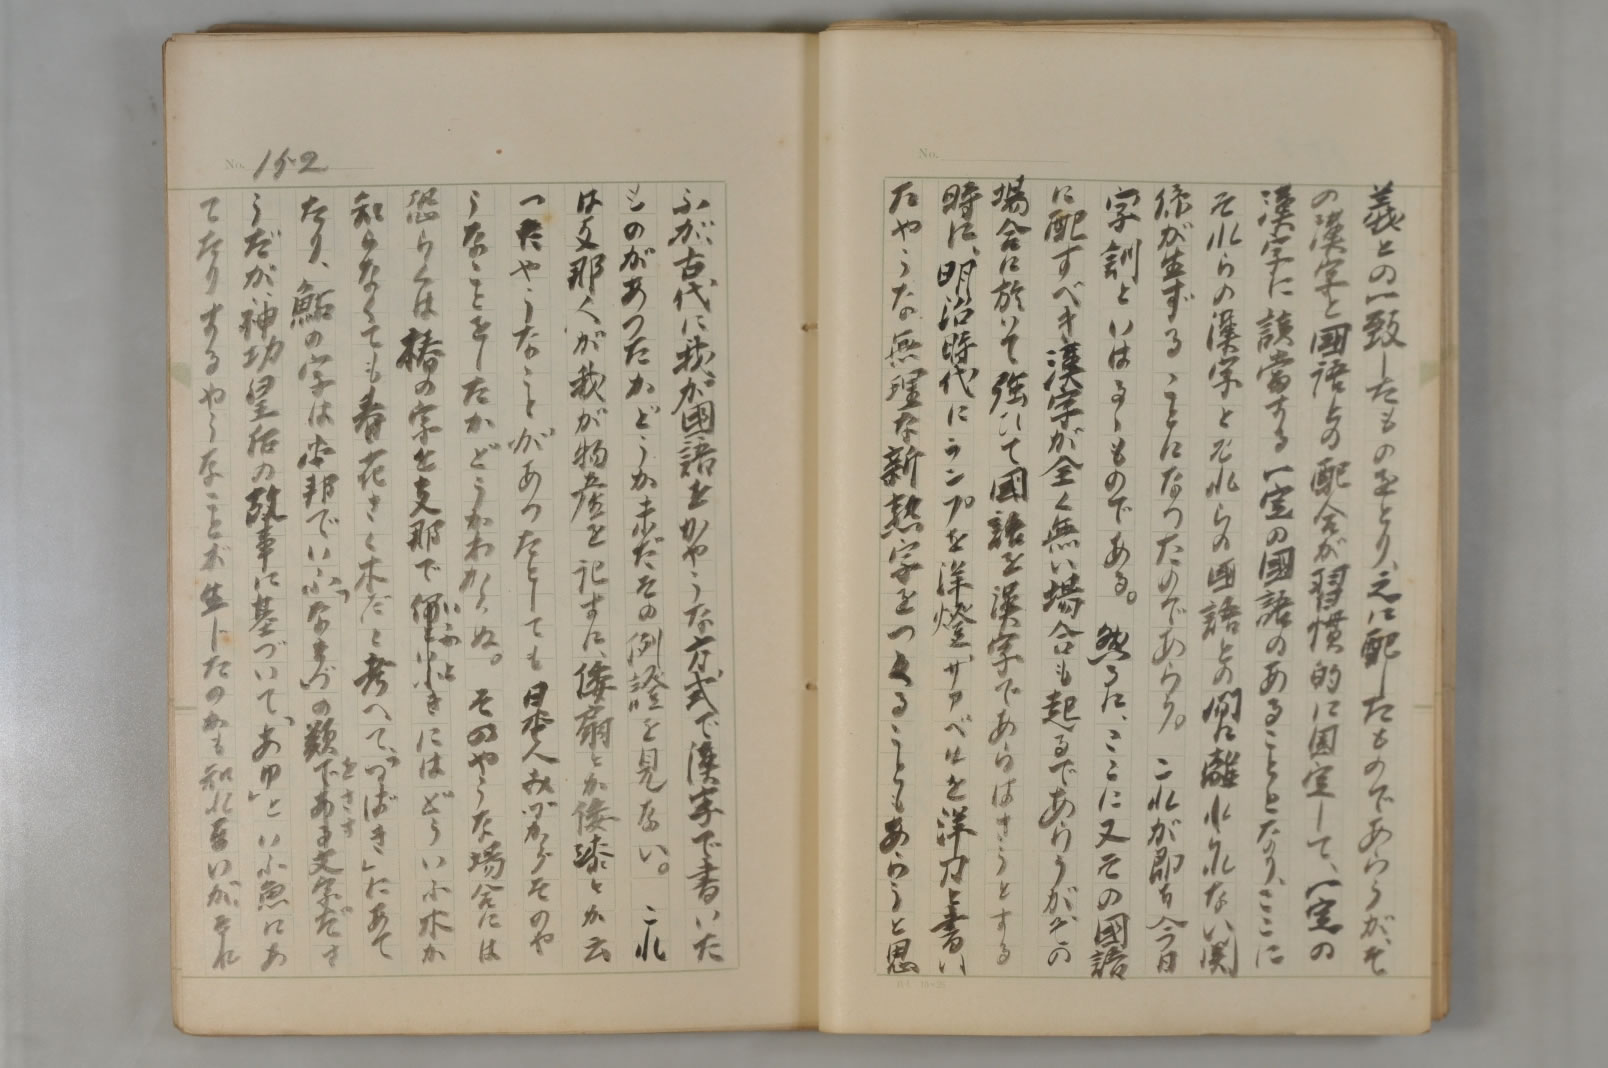 義との一致したものをとり、之に配したものであらうが、そ
の漢字と國語との配合が習慣的に固定して、一定の
漢字に該當する一定の國語のあることとなり、ここに
それらの漢字とそれらの國語との間に離れられない関
係が生ずることになつたのであらう。これが即ち今日
字訓といはるゝものである。然るに、ここに又その國語
に配すべき漢字が全く無い場合も起るであらうが、その
場合に於いて強ひて國語を漢字であらはさうとする
時に、明治時代にランプを洋燈、サアベルを洋刀と書い
たやうな無理な新熟字をつくることもあらうと思
No. 152
ふが、古代に我が國語をかやうな方式で漢字で書いた
ものがあつたかどうか未だその例證を見ない。これ
は支那人が我が物產を記すに、倭扇とか倭漆とか云
つたやうなことがあつたとしても日本人みづからそのや
うなことをしたかどうかわからぬ。そのやうな場合には
恐らくは椿の字を支那で何といふ木かにはどういふ木か
知らなくても春花さく木だと考へて、「つばき」にあて
たり、鮎の字は本邦でいふなまづの類であるを文字ださ
うだが神功皇后の故事に基づいて、「あゆ」といふ魚にあ
てたりするやうなことが生じたのかも知れないが、それ